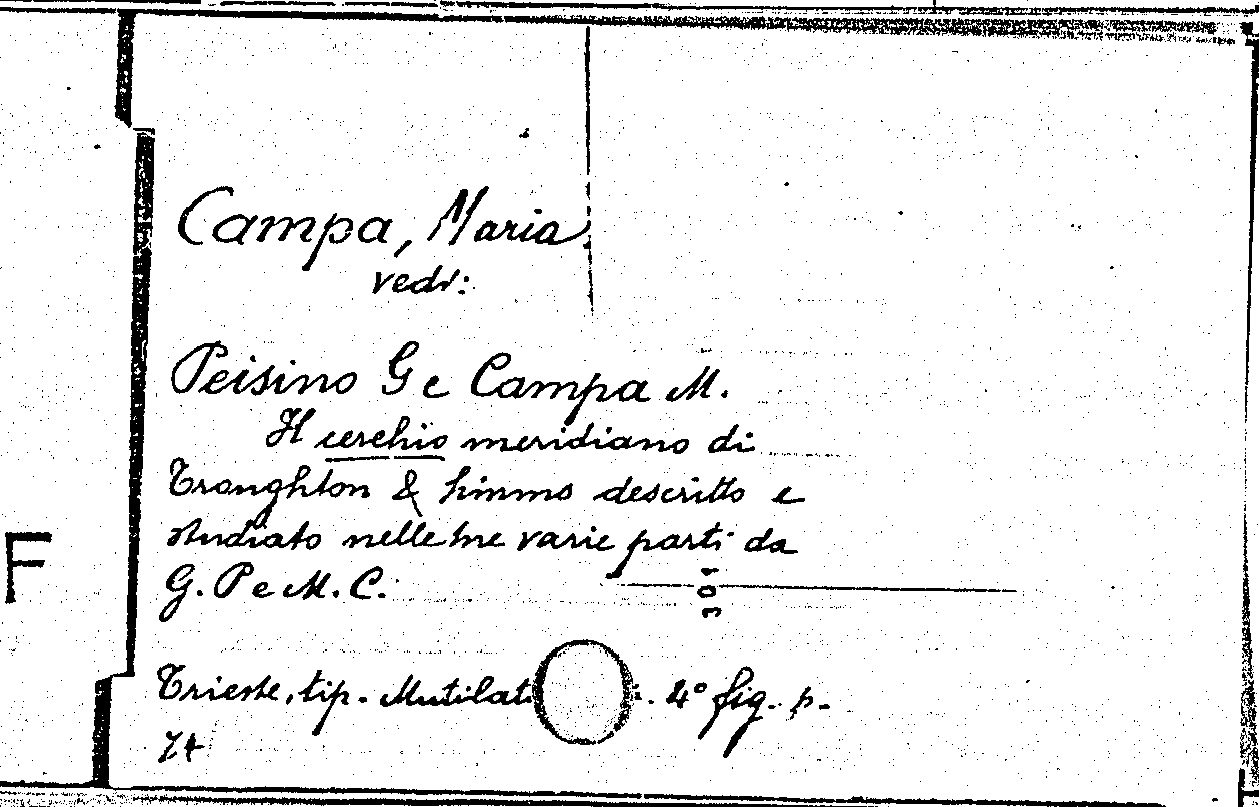 Campa, Maria.
vedi:
Peisino G e Campa M.
Il cerchio meridiano di
Troughton & Simms descritto e
studiato nelle sue varie parti da
G. P e M. C.
301
F
Trieste, tip. Mutilat . 4° fig. p.
74